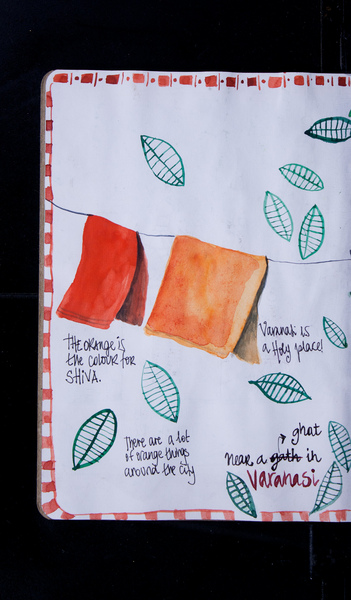 THE orange is
the colour for
SHIVA.
Varanasi is
a Holy place!
There are a lot
of orange things
around the city
ghat
near a gath in
Varanasi